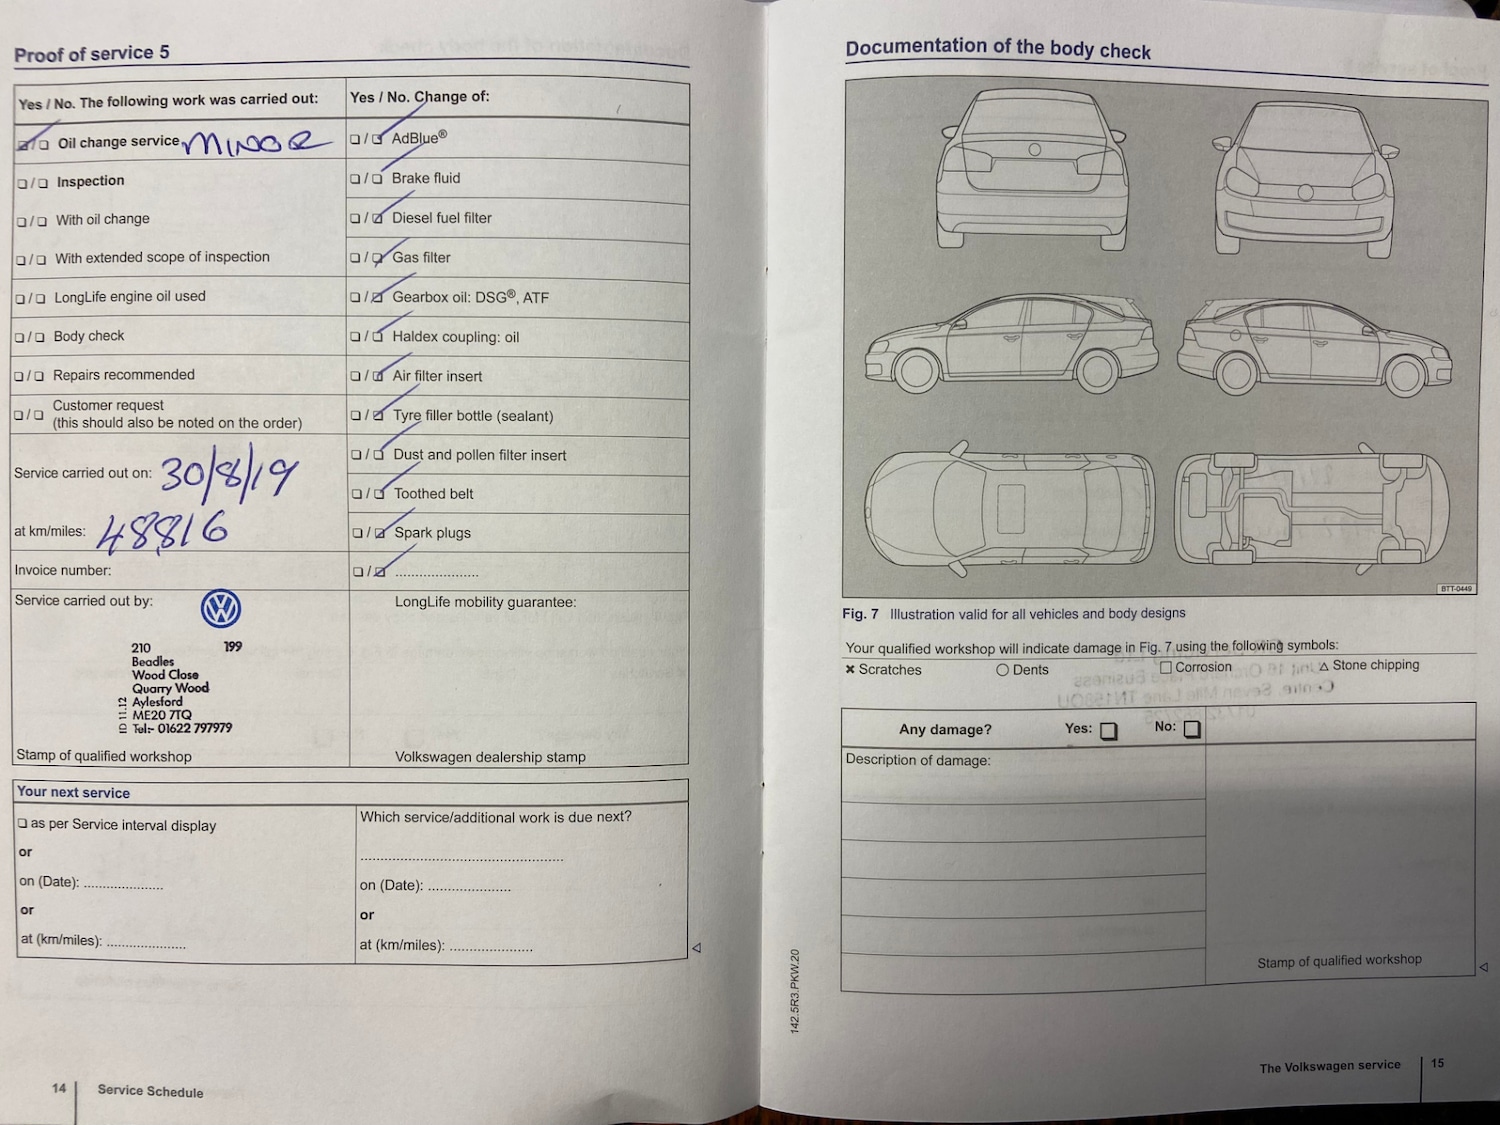 Proof of service 5
Yes / No. The following work was carried out:
☑/❏ Oil change service MINOR
❏/❏ Inspection
❏/❏ With oil change
❏/❏ With extended scope of inspection
❏/❏ LongLife engine oil used
❏/❏ Body check
❏/❏ Repairs recommended
❏/❏ Customer request
(this should also be noted on the order)
Service carried out on: 30/8/19
at km/miles: 48,816
Invoice number:
Service carried out by:
VW
210 199
Beadles
Wood Close
Quarry Wood
Aylesford
ME20 7TQ
Tel:- 01622 797979
ID 11.12
Stamp of qualified workshop
Yes / No. Change of:
❏/☑ AdBlue®
❏/☑ Brake fluid
❏/☑ Diesel fuel filter
❏/☑ Gas filter
❏/☑ Gearbox oil: DSG®, ATF
❏/☑ Haldex coupling: oil
❏/☑ Air filter insert
❏/☑ Tyre filler bottle (sealant)
❏/☑ Dust and pollen filter insert
❏/☑ Toothed belt
❏/☑ Spark plugs
❏/☑ ......................
LongLife mobility guarantee:
Volkswagen dealership stamp
Your next service
❏ as per Service interval display
or
on (Date): .....................
or
at (km/miles): .....................
Which service/additional work is due next?
......................................................
on (Date): ......................
or
at (km/miles): ......................
14 Service Schedule
Documentation of the body check
BTT-0449
Fig. 7 Illustration valid for all vehicles and body designs
Your qualified workshop will indicate damage in Fig. 7 using the following symbols:
✖ Scratches ○ Dents □ Corrosion △ Stone chipping
Any damage? Yes: ❏ No: ❏
Description of damage:
Stamp of qualified workshop
142.5R3.PKW.20
The Volkswagen service 15